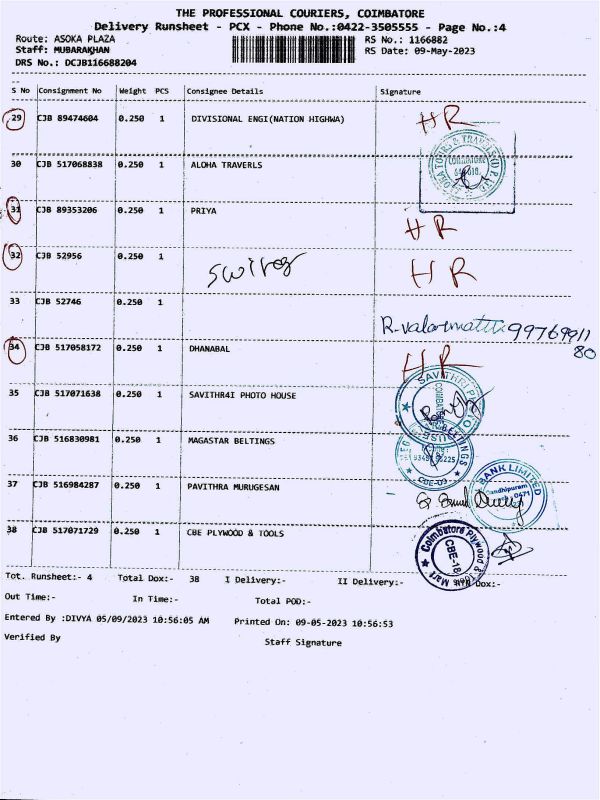 THE PROFESSIONAL COURIERS, COIMBATORE
Delivery Runsheet - PCX - Phone No.:0422-3505555 - Page No.:4
Route: ASOKA PLAZA RS No.: 1166882
Staff: MUBARAKHAN RS Date: 09-May-2023
DRS No.: DCJB116688204
S No Consignment No Weight PCS Consignee Details Signature
29 CJB 89474604 0.250 1 DIVISIONAL ENGI(NATION HIGHWA) HR
30 CJB 517068838 0.250 1 ALOHA TRAVERLS
31 CJB 89353206 0.250 1 PRIYA HR
32 CJB 52956 0.250 1 HR
33 CJB 52746 0.250 1 99769911
80
34 CJB 517058172 0.250 1 DHANABAL HR
35 CJB 517071638 0.250 1 SAVITHR4I PHOTO HOUSE
SAVITHRI
36 CJB 516830981 0.250 1 MAGASTAR BELTINGS
CBE-09
37 CJB 516984287 0.250 1 PAVITHRA MURUGESAN
BANK LIMITED
Gandhipuram
0471
38 CJB 517071729 0.250 1 CBE PLYWOOD & TOOLS
Coimbatore Plywood & Tools Mart
CBE-18
Tot. Runsheet:- 4 Total Dox:- 38 I Delivery:- II Delivery:- Dox:-
Out Time:- In Time:- Total POD:-
Entered By :DIVYA 05/09/2023 10:56:05 AM Printed On: 09-05-2023 10:56:53
Verified By Staff Signature